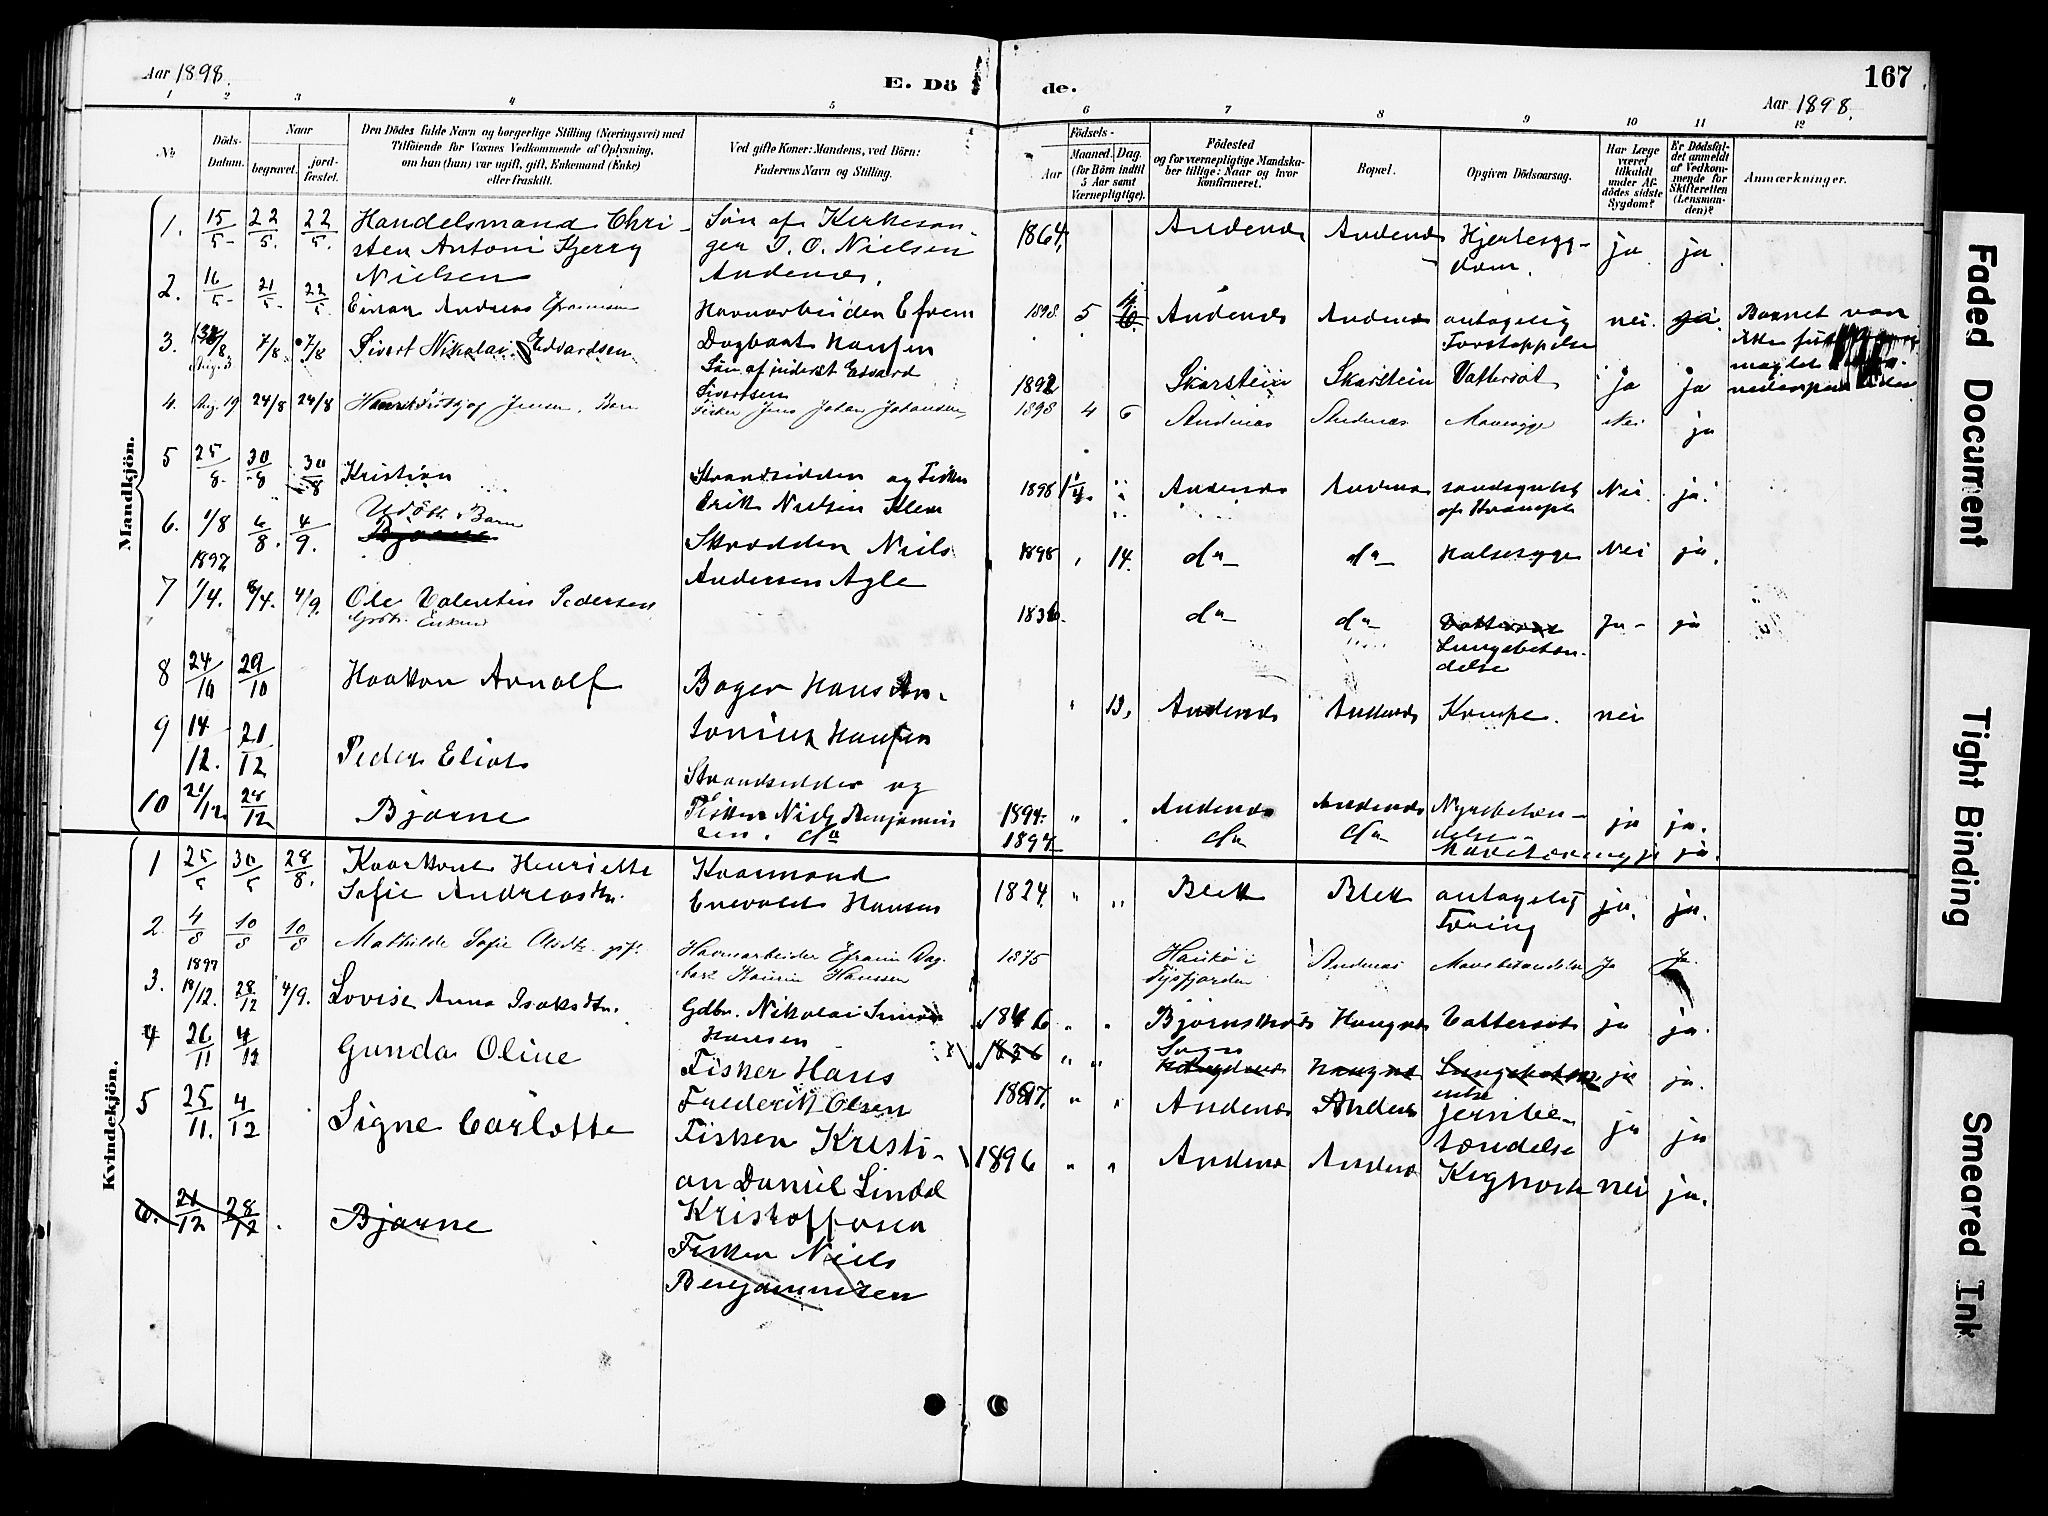 Aar 1898.
E. Dö
de.
167
Aar 1898.
1 2 3 4 5 6 7 8 9 10 11 12
No
Döds-
Datum.
Naar
begravet.
jord-
fæstet.
Den Dödes fulde Navn og borgerlige Stilling (Næringsvei) med
Tilföiende for Voxnes Vedkommende af Oplysning,
om han (hun) var ugift, gift, Enkemand (Enke)
eller fraskilt.
Ved gifte Koner: Mandens, ved Börn:
Faderens Navn og Stilling.
Födsels-
Aar
Maaned.
Dag.
(for Börn indtil
5 Aar samt
Værnepligtige).
Födested
og for værnepligtige Mandska-
ber tillige: Naar og hvor
konfirmeret.
Bopæl.
Opgiven Dödsaarsag.
Har Læge
været
tilkaldt
under Af-
dödes sidste
Sygdom?
Er Dödsfal-
det anmeldt
af Vedkom-
mende for
Skifteretten
(Lensman-
den)?
Anmærkninger.
Mandkjön.
1. 15/5 22/5 22/5 Handelsmand Chri-
sten Antoni Bjerry
Nielsen
Søn af Kirkesan-
ger J. O. Nielsen
Andenæs.
1864. Andenæs Andenæs Hjertesyg-
dom. ja ja.
2. 16/5 21/5 22/5 Einar Andreas
Havnarbeider Efrem
Dagbart Hansen
1898 5 Andenæs Andenæs antagelig
Forstoppelse nei. ja. Barnet var
ikke
3. 7/8 7/8 Sivert Nikolai Edvardsen
Søn af inderst Edvard
Sivertsen
1892 Skarstein Skarstein Vattersot ja ja
4. Aug. 19 24/8 24/8 Jensen, Barn
Fisker Jens Johan Johansen
1898 4 6 Andenæs Andenæs Mavesyge Nei ja
5 25/8 30/8 30/8 Kristian
Strandsidder og Fisker
Erik Nielsen Kleu
1898 Andenæs Andenæs
af Krampe Nei ja
6. 1/8 6/8. 4/9. Udøbt Barn
Bjarne
Skrædder Niels
Andersen Agle
1898 14. do do Halsesyge Nei ja.
1897
7 1/4. 8/4. 4/9. Ole Valentin Pedersen
1836. do do
Lungebetæn-
delse Ja- ja
8 24/10 29/10 Haakon Arnolf
Bager Hans An-
tonius Hansen
13. Andenæs Andenæs Krampe. nei
9 14/12. 21/12 Peder Eliot
Strandsidder og
Fisker Niels Benjamin
sen.
1894. Andenæs Andenæs Nyrebetæn-
delse ja ja.
10 21/12. 28/12 Bjarne
do
1897 do do ja ja.
Kvindekjön.
1 25/5 30/5 28/8. Kaarkone Henriette
Sofie Andreasdtr.
Kaarmand
Enevold Hansen
1824 Bleik Bleik antagelig
Tæring ja. ja.
2 4/8 10/8 10/8 Mathilde Sofie Olsdtr. gift.
Havnearbeider Efraim Dag-
bart Hansen
1875 Haukø i
Tysfjorden Andenæs Mavebetændelse Ja Ja.
1897
3. 18/12. 28/12 4/9. Lovise Anna Isaksdtr.
Gdbr. Nikolai Simon
Hansen
1846 Bjørnskinds
Sogn Haugnes Vattersot ja ja.
4 26/11 4/12 Gunda Oline
Fisker Hans
Frederik Olsen
1836 Haugnes ja ja.
1897. Andenæs Andenæs Hjernebe-
tændelse ja ja
5 25/11. 4/12 Signe Carlotte
Fisker Kristi-
an Daniel Lindal
Kristoffersen
1896 Andenæs Andenæs Kighoste nei ja.
6. 21/12 28/12 Bjarne
Fisker Niels
Benjaminsen
Faded Document
Tight Binding
Smeared Ink